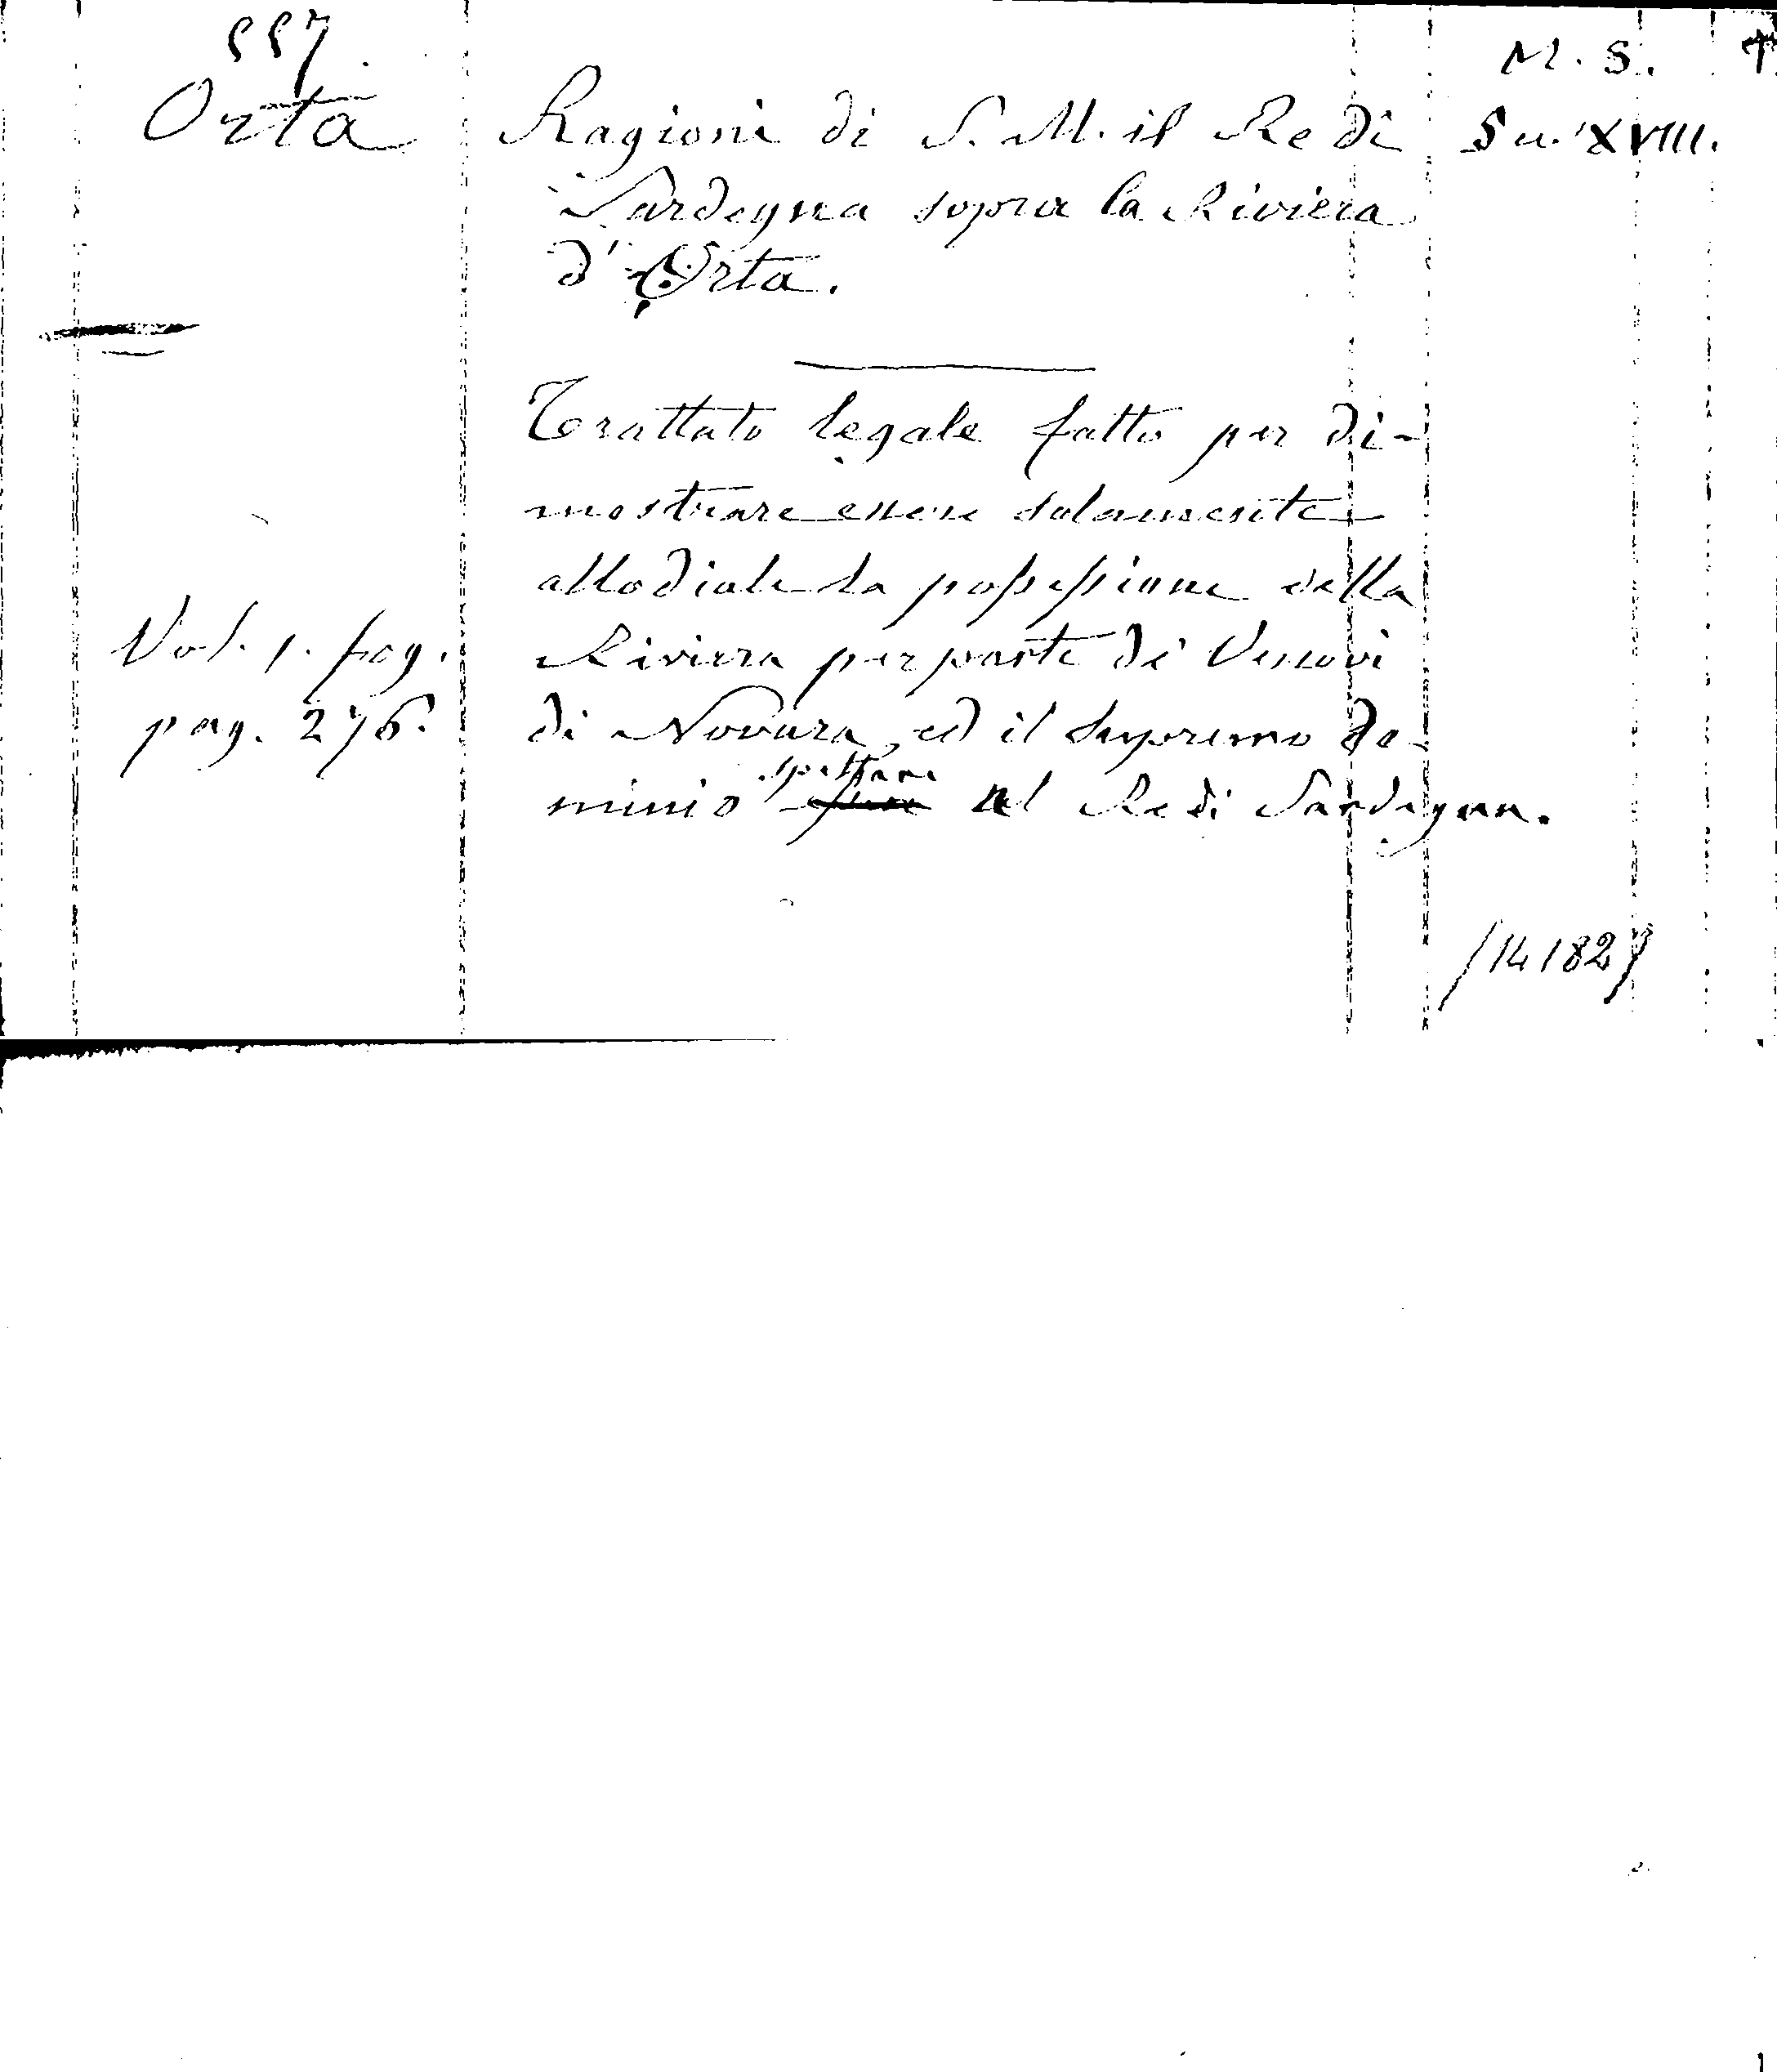 557
M. S.
Orta Ragioni di S. M. il Re di Sec. XVIII.
Sardegna sopra la Riviera
d'Orta.
Trattato legale fatto per di-
mostrare essere solamente
allodiale la possessione della
Vol. 1. fog. Riviera per parte de' Vescovi
pag. 276. di Novara, ed il supremo do-
spettare
minio al Re di Sardegna.
14182